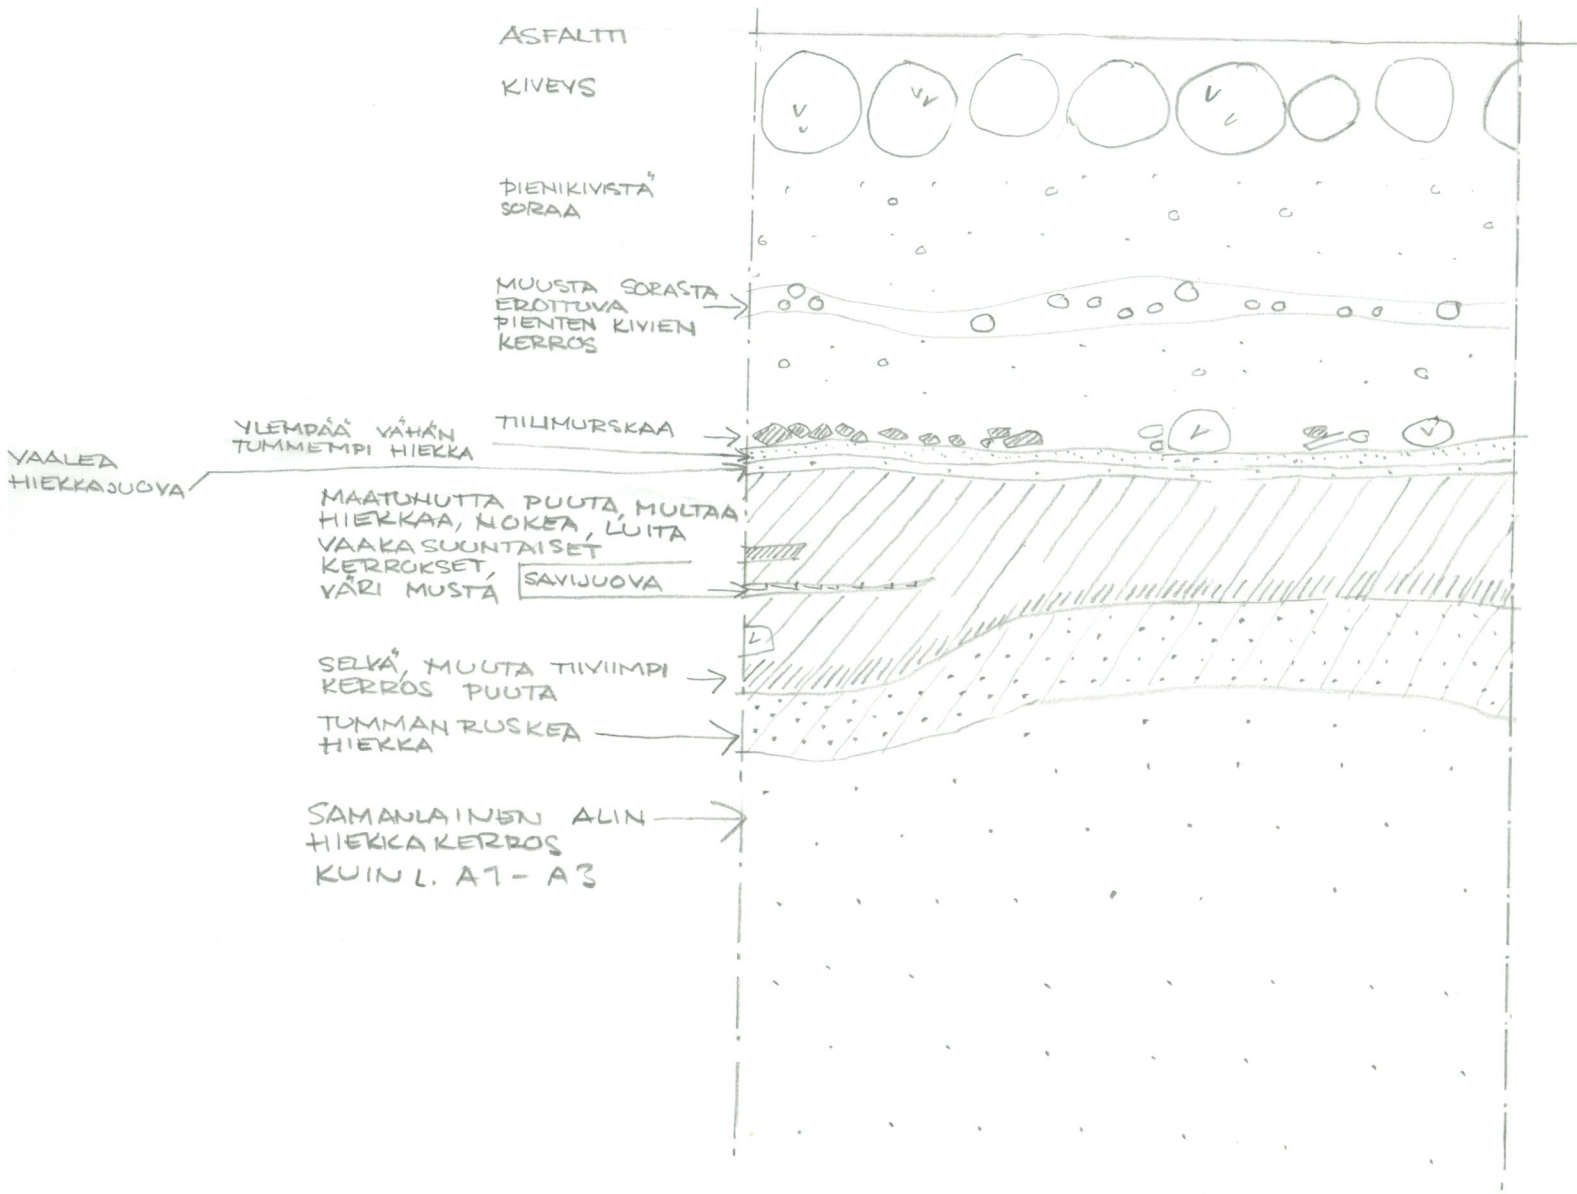 ASFALTTI
KIVEYS
PIENIKIVISTÄ
SORAA
MUUSTA SORASTA
EROTTUVA
PIENTEN KIVIEN
KERROS
TIILIMURSKAA
YLEMPÄÄ VÄHÄN
TUMMEMPI HIEKKA
VAALEA
HIEKKAJUOVA
MAATUNUTTA PUUTA, MULTAA
HIEKKAA, NOKEA, LUITA
VAAKASUUNTAISET
KERROKSET,
VÄRI MUSTA
SAVIJUOVA
SELVÄ, MUUTA TIIVIIMPI
KERROS PUUTA
TUMMAN RUSKEA
HIEKKA
SAMANLAINEN ALIN
HIEKKAKERROS
KUIN L. A1 - A3